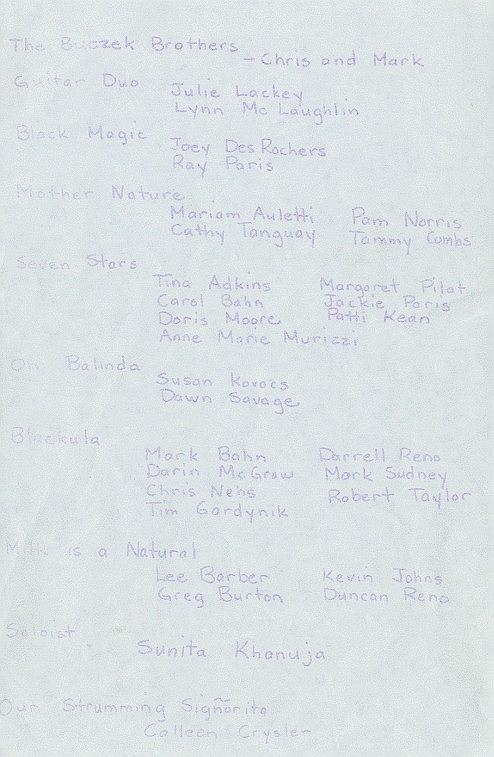 The Buczek Brothers
- Chris and Mark
Guitar Duo Julie Lackey
Lynn McLaughlin
Black Magic Joey DesRochers
Ray Paris
Mother Nature
Mariam Auletti Pam Norris
Cathy Tanguay Tammy Combs
Seven Stars
Tina Adkins Margaret Pilat
Carol Bahn Jackie Paris
Doris Moore Patti Kean
Anne Marie Murizzi
Oh Balinda
Susan Kovacs
Dawn Savage
Blackula
Mark Bahn Darrell Reno
Darin McGraw Mark Sudney
Chris Nehs Robert Taylor
Tim Gardynik
Milk is a Natural
Lee Barber Kevin Johns
Greg Burton Duncan Reno
Soloist
Sunita Khanuja
Our Strumming Signorita
Colleen Crysler